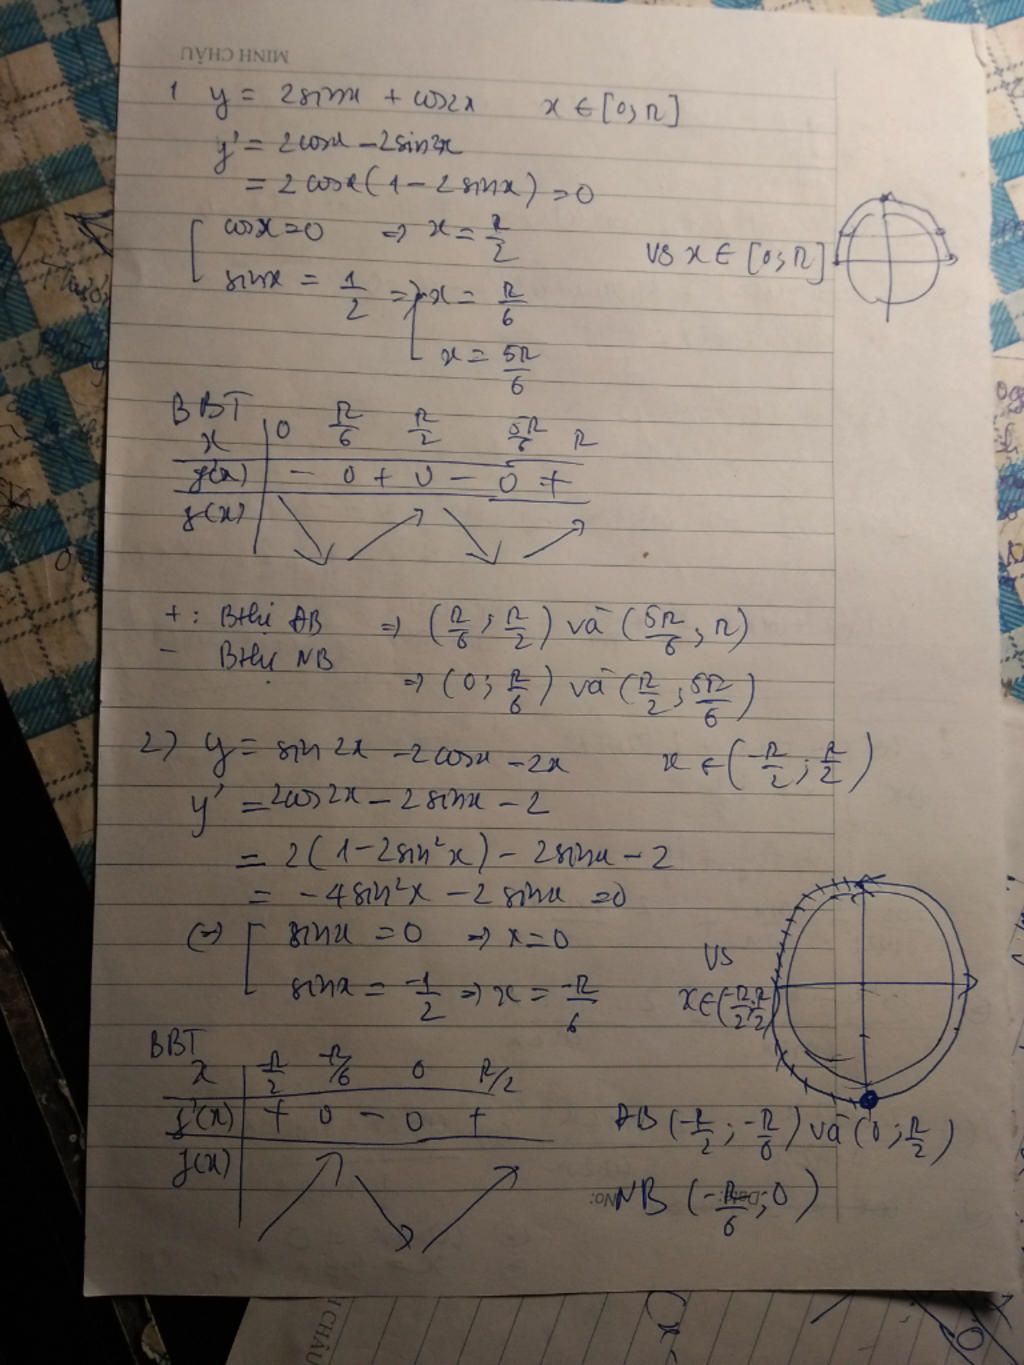 MINH CHÂU
1 y = 2sinx + cos2x x ∈ [0; π]
y' = 2cosx - 2sin2x
= 2cosx(1 - 2sinx) = 0
cosx = 0 => x = π/2
vs x ∈ [0; π]
sinx = 1/2 => x = π/6
x = 5π/6
BBT
x 0 π/6 π/2 5π/6 π
y'(x) - 0 + 0 - 0 +
y(x)
+ : Bthị ĐB => (π/6 ; π/2) và (5π/6 ; π)
- Bthị NB
=> (0 ; π/6) và (π/2 ; 5π/6)
2) y = sin2x - 2cosx - 2x x ∈ (-π/2 ; π/2)
y' = 2cos2x - 2sinx - 2
= 2(1 - 2sin²x) - 2sinx - 2
= -4sin²x - 2sinx = 0
(=) sinx = 0 => x = 0
vs
sinx = -1/2 => x = -π/6
x ∈ (-π/2 ; π/2)
BBT
x -π/2 -π/6 0 π/2
y'(x) + 0 - 0 +
y(x)
ĐB (-π/2 ; -π/6) và (0 ; π/2)
NB (-π/6 ; 0)
Date: No: